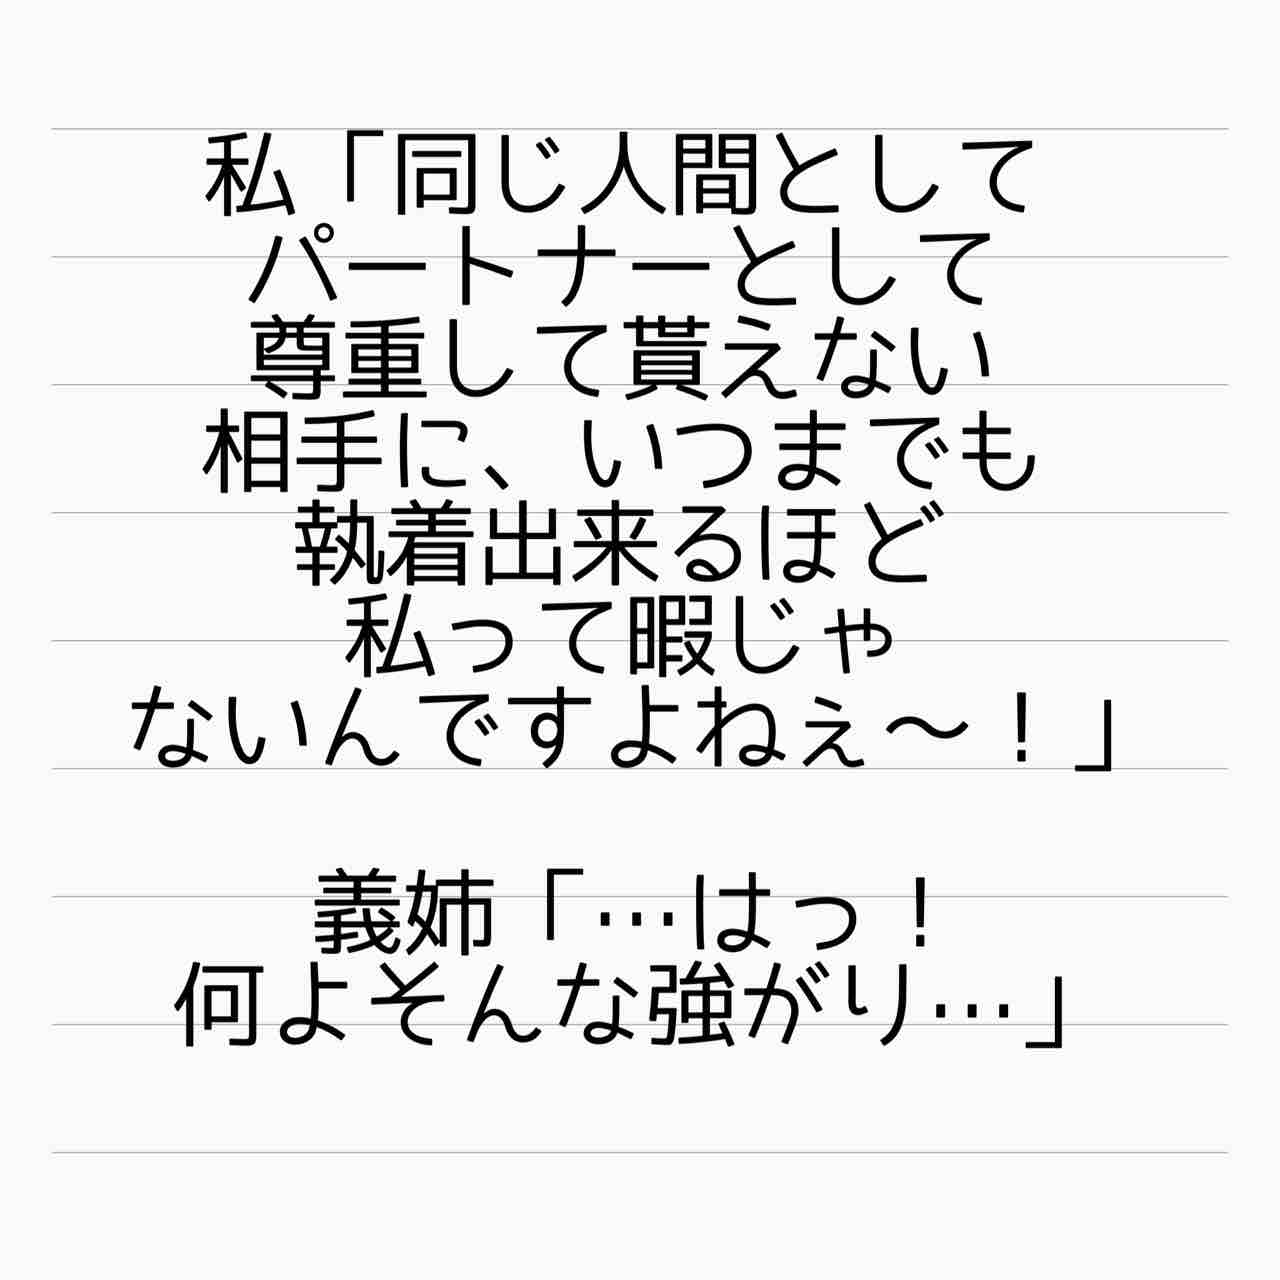 私「同じ人間として
パートナーとして
尊重して貰えない
相手に、いつまでも
執着出来るほど
私って暇じゃ
ないんですよねぇ～！」
義姉「…はっ！
何よそんな強がり…」